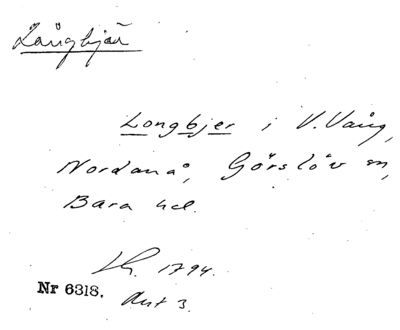 Långbjär
Longbjer i V. Vång,
Nordanå, Görslöv sn,
Bara hd.
Lh. 1794.
Nr 6318. Akt 3.